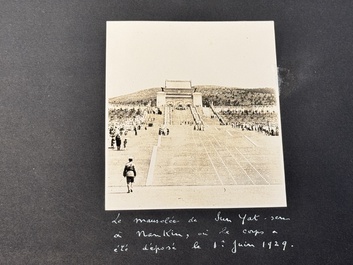 Le mausolée de Sun Yat-sen
à Nankin, où le corps a
été déposé le 1er juin 1929.